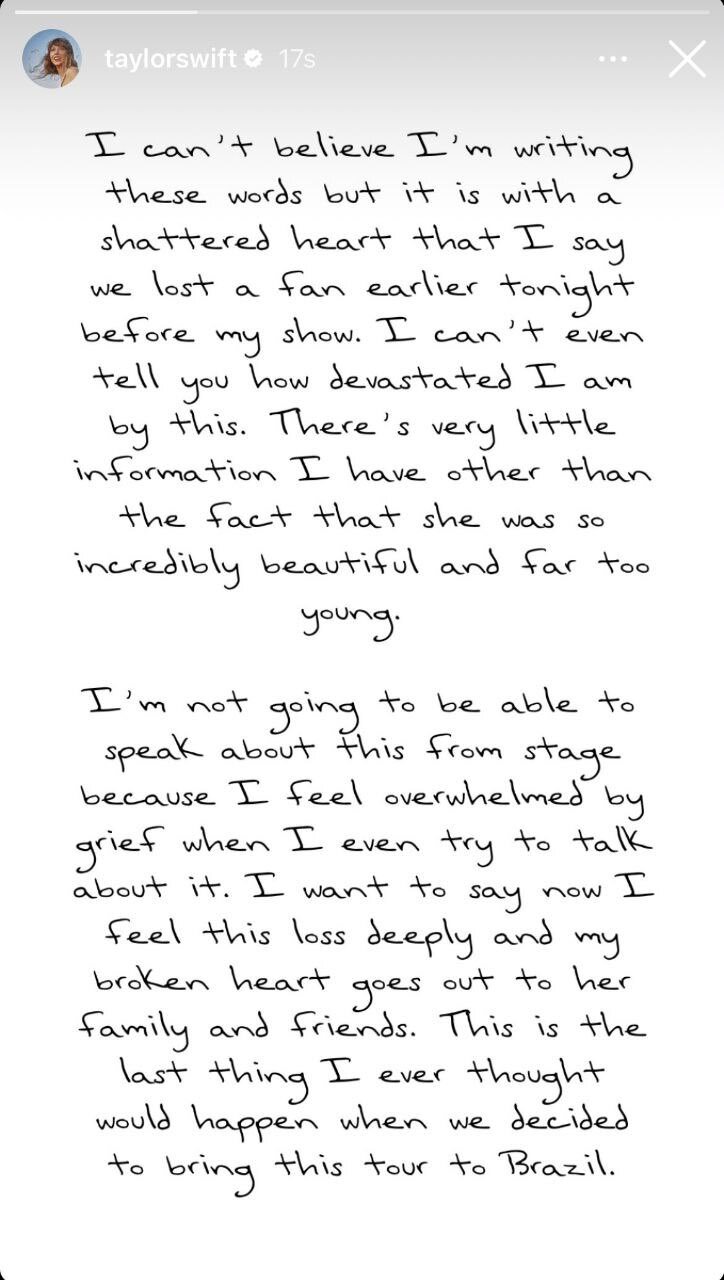 taylorswift 17s
I can't believe I'm writing
these words but it is with a
shattered heart that I say
we lost a fan earlier tonight
before my show. I can't even
tell you how devastated I am
by this. There's very little
information I have other than
the fact that she was so
incredibly beautiful and far too
young.
I'm not going to be able to
speak about this from stage
because I feel overwhelmed by
grief when I even try to talk
about it. I want to say now I
feel this loss deeply and my
broken heart goes out to her
family and friends. This is the
last thing I ever thought
would happen when we decided
to bring this tour to Brazil.